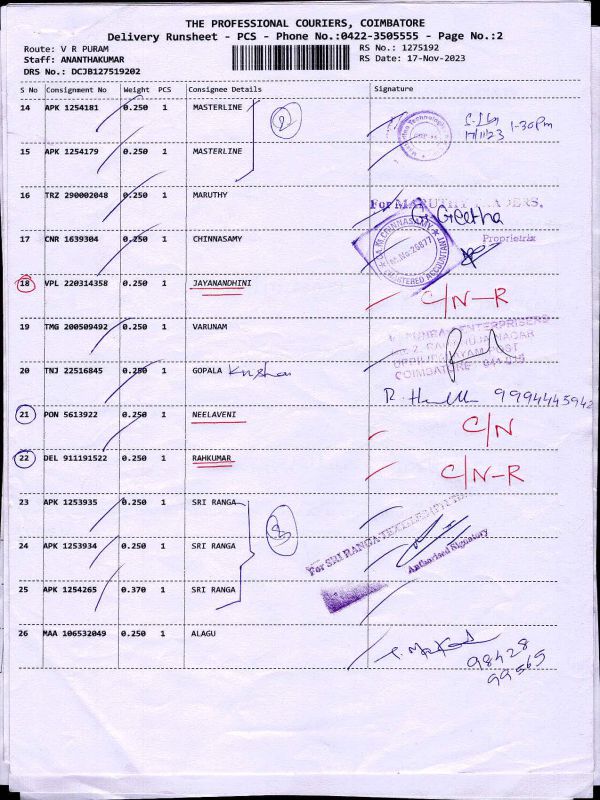 THE PROFESSIONAL COURIERS, COIMBATORE
Delivery Runsheet - PCS - Phone No.:0422-3505555 - Page No.:2
Route: V R PURAM
RS No.: 1275192
Staff: ANANTHAKUMAR
RS Date: 17-Nov-2023
DRS No.: DCJB127519202
S No Consignment No Weight PCS Consignee Details Signature
14 APK 1254181 0.250 1 MASTERLINE
2
17/11/23 1-30pm
15 APK 1254179 0.250 1 MASTERLINE
16 TRZ 290002048 0.250 1 MARUTHY
G. Geetha
Proprietrix
17 CNR 1639304 0.250 1 CHINNASAMY
M.No.25877
CHARTERED ACCOUNTANT
18 VPL 220314358 0.250 1 JAYANANDHINI C/N-R
19 TMG 200509492 0.250 1 VARUNAM
ENTERPRISERS
COIMBATORE
20 TNJ 22516845 0.250 1 GOPALA
9994445942
21 PON 5613922 0.250 1 NEELAVENI C/N
22 DEL 911191522 0.250 1 RAHKUMAR C/N-R
23 APK 1253935 0.250 1 SRI RANGA
For SRI RANGA TEXTILES (P) LTD.
24 APK 1253934 0.250 1 SRI RANGA
Authorised Signatory
25 APK 1254265 0.370 1 SRI RANGA
26 MAA 106532049 0.250 1 ALAGU
98428
99565